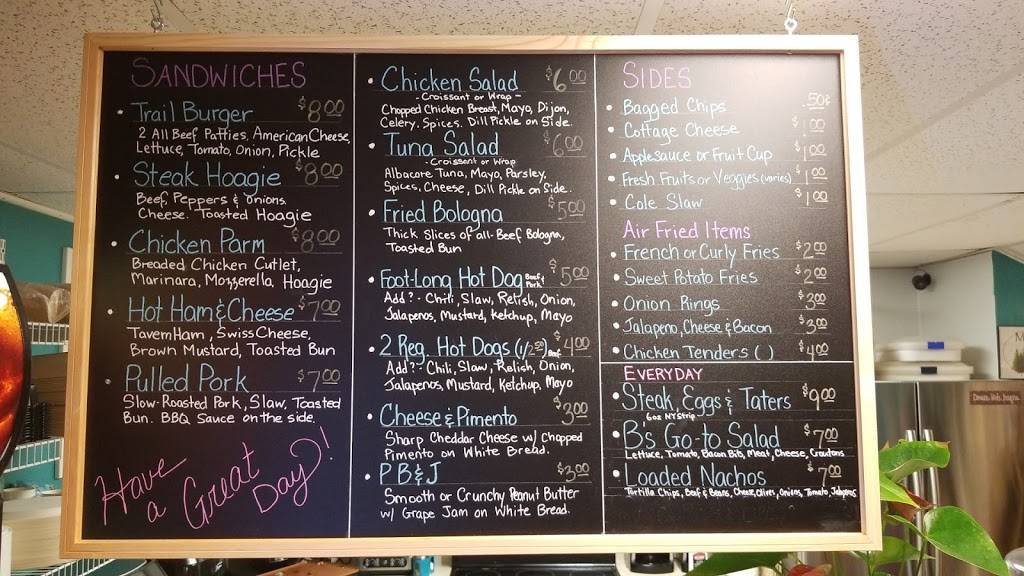 SANDWICHES
• Trail Burger $8.00
2 All Beef Patties, American Cheese,
Lettuce, Tomato, Onion, Pickle
• Steak Hoagie $8.00
Beef, Peppers & Onions.
Cheese. Toasted Hoagie
• Chicken Parm $8.00
Breaded Chicken Cutlet,
Marinara, Mozzerella Hoagie
• Hot Ham & Cheese $7.00
Tavern Ham, Swiss Cheese,
Brown Mustard, Toasted Bun
• Pulled Pork $7.00
Slow-Roasted Pork, Slaw, Toasted
Bun. BBQ Sauce on the side.
Have
a Great
Day!
• Chicken Salad $6.00
- Croissant or Wrap -
Chopped Chicken Breast, Mayo, Dijon,
Celery, Spices, Dill Pickle on Side.
• Tuna Salad $6.00
- Croissant or Wrap
Albacore Tuna, Mayo, Parsley,
Spices, Cheese, Dill Pickle on Side.
• Fried Bologna $5.00
Thick Slices of all-Beef Bologna,
Toasted Bun
• Foot-Long Hot Dog Beef & Pork $5.00
Add? - Chili, Slaw, Relish, Onion,
Jalapenos, Mustard, Ketchup, Mayo
• 2 Reg. Hot Dogs $4.00
Add? - Chili, Slaw, Relish, Onion,
Jalapenos, Mustard, Ketchup, Mayo
• Cheese & Pimento $3.00
Sharp Cheddar Cheese w/ Chopped
Pimento on White Bread.
• PB & J $3.00
Smooth or Crunchy Peanut Butter
w/ Grape Jam on White Bread.
SIDES
• Bagged Chips .50¢
• Cottage Cheese $1.00
• Applesauce or Fruit Cup $1.00
• Fresh Fruits or Veggies (varies) $1.00
• Cole Slaw $1.00
Air Fried Items
• French or Curly Fries $2.00
• Sweet Potato Fries $2.00
• Onion Rings $3.00
• Jalapeno, Cheese & Bacon $3.00
• Chicken Tenders ( ) $4.00
EVERYDAY
• Steak, Eggs & Taters $9.00
6oz NY Strip
• B's Go-to Salad $7.00
Lettuce, Tomato, Bacon Bits, Meat, Cheese, Croutons
• Loaded Nachos $7.00
Tortilla Chips, Beef & Beans, Cheese, Olives, Onions, Tomato, Jalapenos